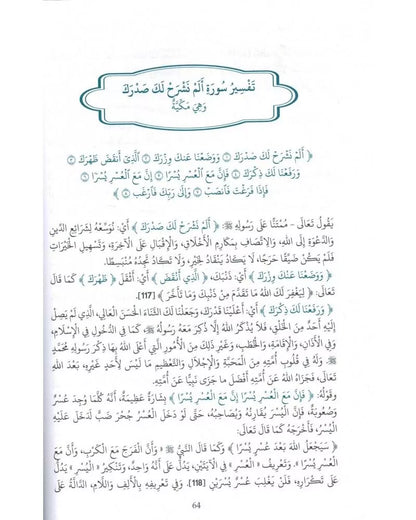 تَفْسِيرُ سُورَةِ أَلَمْ نَشْرَحْ لَكَ صَدْرَكَ
وَهِيَ مَكِّيَّةٌ
﴿ أَلَمْ نَشْرَحْ لَكَ صَدْرَكَ ۝ وَوَضَعْنَا عَنكَ وِزْرَكَ ۝ الَّذِي أَنقَضَ ظَهْرَكَ ۝
وَرَفَعْنَا لَكَ ذِكْرَكَ ۝ فَإِنَّ مَعَ الْعُسْرِ يُسْرًا ۝ إِنَّ مَعَ الْعُسْرِ يُسْرًا ۝
فَإِذَا فَرَغْتَ فَانصَبْ ۝ وَإِلَى رَبِّكَ فَارْغَب ۝ ﴾
يَقُولُ تَعَالَى - مُمْتَنًّا عَلَى رَسُولِهِ ﷺ: ﴿ أَلَمْ نَشْرَحْ لَكَ صَدْرَكَ ﴾ أَيْ: نُوَسِّعْهُ لِشَرَائِعِ الدِّينِ
وَالدَّعْوَةِ إِلَى اللهِ، وَالِاتِّصَافِ بِمَكَارِمِ الْأَخْلَاقِ، وَالْإِقْبَالِ عَلَى الْآخِرَةِ، وَتَسْهِيلِ الْخَيْرَاتِ
فَلَمْ يَكُنْ ضَيِّقًا حَرَجًا، لَا يَكَادُ يَنْقَادُ لِخَيْرٍ، وَلَا تَكَادُ تَجِدُهُ مُنْبَسِطًا.
﴿ وَوَضَعْنَا عَنكَ وِزْرَكَ ﴾ أَيْ: ذَنْبَكَ، ﴿ الَّذِي أَنقَضَ ﴾ أَيْ: أَثْقَلَ ﴿ ظَهْرَكَ ﴾ كَمَا قَالَ
تَعَالَى: ﴿ لِيَغْفِرَ لَكَ اللهُ مَا تَقَدَّمَ مِنْ ذَنْبِكَ وَمَا تَأَخَّرَ ﴾ [117].
﴿ وَرَفَعْنَا لَكَ ذِكْرَكَ ﴾ أَيْ: أَعْلَيْنَا قَدْرَكَ، وَجَعَلْنَا لَكَ الثَّنَاءَ الْحَسَنَ الْعَالِي، الَّذِي لَمْ يَصِلْ
إِلَيْهِ أَحَدٌ مِنَ الْخَلْقِ، فَلَا يُذْكَرُ اللهُ إِلَّا ذُكِرَ مَعَهُ رَسُولُهُ ﷺ، كَمَا فِي الدُّخُولِ فِي الْإِسْلَامِ،
وَفِي الْأَذَانِ، وَالْإِقَامَةِ، وَالْخُطَبِ، وَغَيْرِ ذَلِكَ مِنَ الْأُمُورِ الَّتِي أَعْلَى اللهُ بِهَا ذِكْرَ رَسُولِهِ مُحَمَّدٍ
ﷺ. وَلَهُ فِي قُلُوبِ أُمَّتِهِ مِنَ الْمَحَبَّةِ وَالْإِجْلَالِ وَالتَّعْظِيمِ مَا لَيْسَ لِأَحَدٍ غَيْرِهِ، بَعْدَ اللهِ
تَعَالَى، فَجَزَاهُ اللهُ عَنْ أُمَّتِهِ أَفْضَلَ مَا جَزَى نَبِيًّا عَنْ أُمَّتِهِ.
وَقَوْلُهُ: ﴿ فَإِنَّ مَعَ الْعُسْرِ يُسْرًا إِنَّ مَعَ الْعُسْرِ يُسْرًا ﴾ بِشَارَةٌ عَظِيمَةٌ، أَنَّهُ كُلَّمَا وُجِدَ عُسْرٌ
وَصُعُوبَةٌ، فَإِنَّ الْيُسْرَ يُقَارِنُهُ وَيُصَاحِبُهُ، حَتَّى لَوْ دَخَلَ الْعُسْرُ جُحْرَ ضَبٍّ لَدَخَلَ عَلَيْهِ
الْيُسْرُ، فَأَخْرَجَهُ كَمَا قَالَ تَعَالَى:
﴿ سَيَجْعَلُ اللهُ بَعْدَ عُسْرٍ يُسْرًا ﴾ وَكَمَا قَالَ النَّبِيُّ ﷺ «وَأَنَّ الْفَرَجَ مَعَ الْكَرْبِ، وَأَنَّ مَعَ
الْعُسْرِ يُسْرًا». وَتَعْرِيفُ «الْعُسْرِ» فِي الْآيَتَيْنِ، يَدُلُّ عَلَى أَنَّهُ وَاحِدٌ، وَتَنْكِيرُ «الْيُسْرِ» يَدُلُّ
عَلَى تَكْرَارِهِ، فَلَنْ يَغْلِبَ عُسْرٌ يُسْرَيْنِ [118]. وَفِي تَعْرِيفِهِ بِالْأَلِفِ وَاللَّامِ، الدَّالَّةِ عَلَى
64